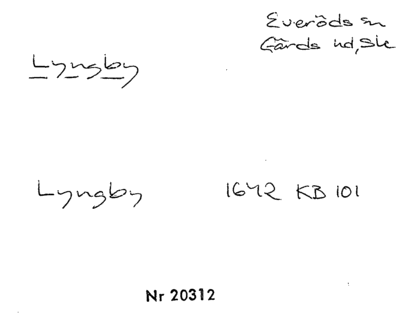 Everöds sn
Gärds hd, Sk
Lyngby
Lyngby 1642 KB 101
Nr 20312